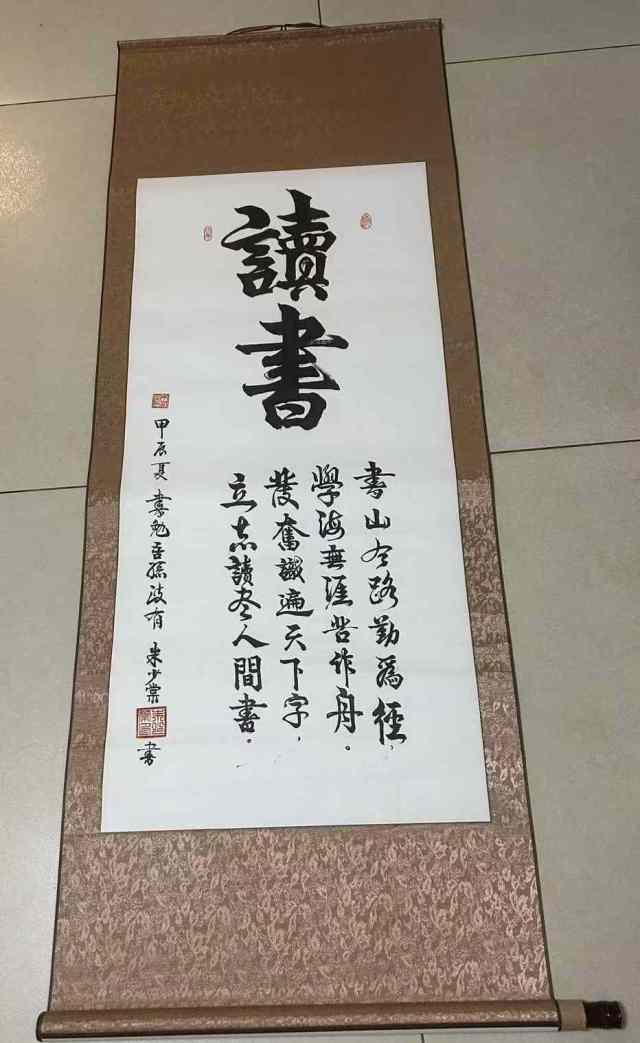 讀書
書山有路勤為徑，
學海無涯苦作舟。
發奮識遍天下字，
立志讀盡人間書。
甲辰夏 書勉吾孫波有 朱少棠 書